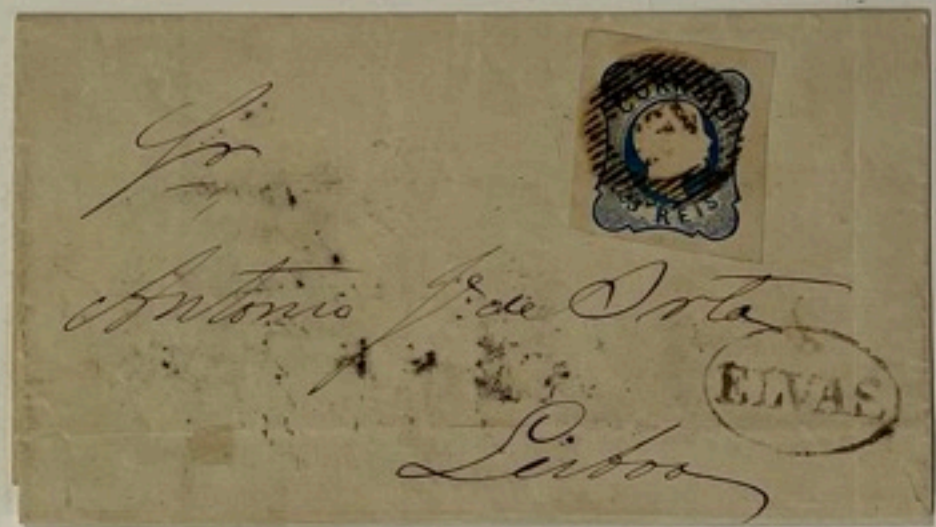 CORREIO
25 REIS
Sr
Antonio Je. de Orta
ELVAS
Lisboa